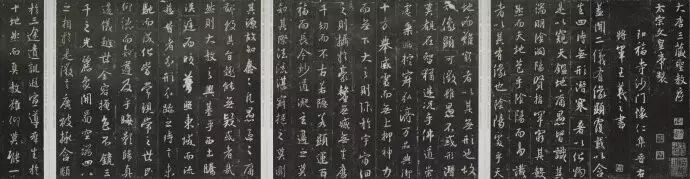 大唐三藏聖教序
太宗文皇帝製
弘福寺沙門懷仁集晉右
將軍王羲之書
蓋聞二儀有像顯覆載以含
生四時無形潛寒暑以化物
是以窺天鑑地庸愚皆識其
端明陰洞陽賢哲罕窮其數
然而天地苞乎陰陽而易識
者以其有像也陰陽處乎天
地而難窮者以其無形也故
知像顯可徵雖愚不惑形潛
莫睹在智猶迷況乎佛道崇
虛乘幽控寂弘濟萬品典御
十方舉威靈而無上抑神力
而無下大之則彌於宇宙細
之則攝於毫釐無滅無生歷
千劫而不古若隱若顯運百
福而長今妙道凝玄遵之莫
知其際法流湛寂挹之莫測
其源故知蠢蠢凡愚區區庸
鄙投其旨趣能無疑惑者哉
然則大教之興基乎西土騰
漢庭而皎夢照東域而流
慈昔者分形分跡之時言未
馳而成化當常現常之世民
仰德而知遵及乎晦影歸真
遷儀越世金容掩色不鏡三
千之光麗象開圖空端四八
之相於是微言廣被拯含類
於三途遺訓遐宣導群生於
十地然而真教難仰莫能一